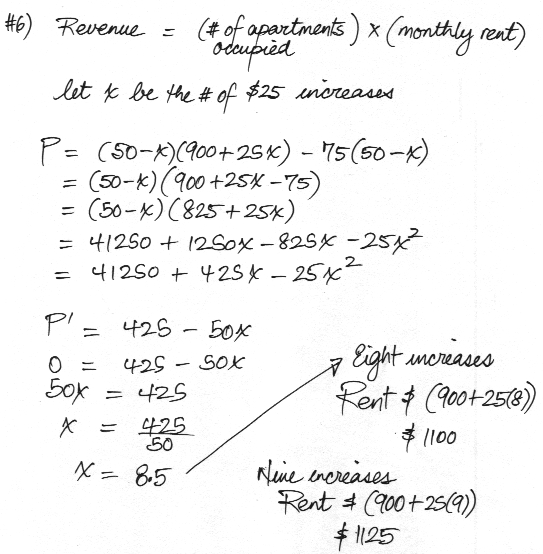 #6) Revenue = (# of apartments occupied) x (monthly rent)
let x be the # of $25 increases
P = (50-x)(900+25x) - 75(50-x)
= (50-x)(900+25x-75)
= (50-x)(825+25x)
= 41250 + 1250x - 825x - 25x²
= 41250 + 425x - 25x²
P' = 425 - 50x
0 = 425 - 50x
50x = 425
x = 425/50
x = 8.5
Eight increases
Rent $ (900+25(8))
$ 1100
Nine increases
Rent $ (900+25(9))
$ 1125